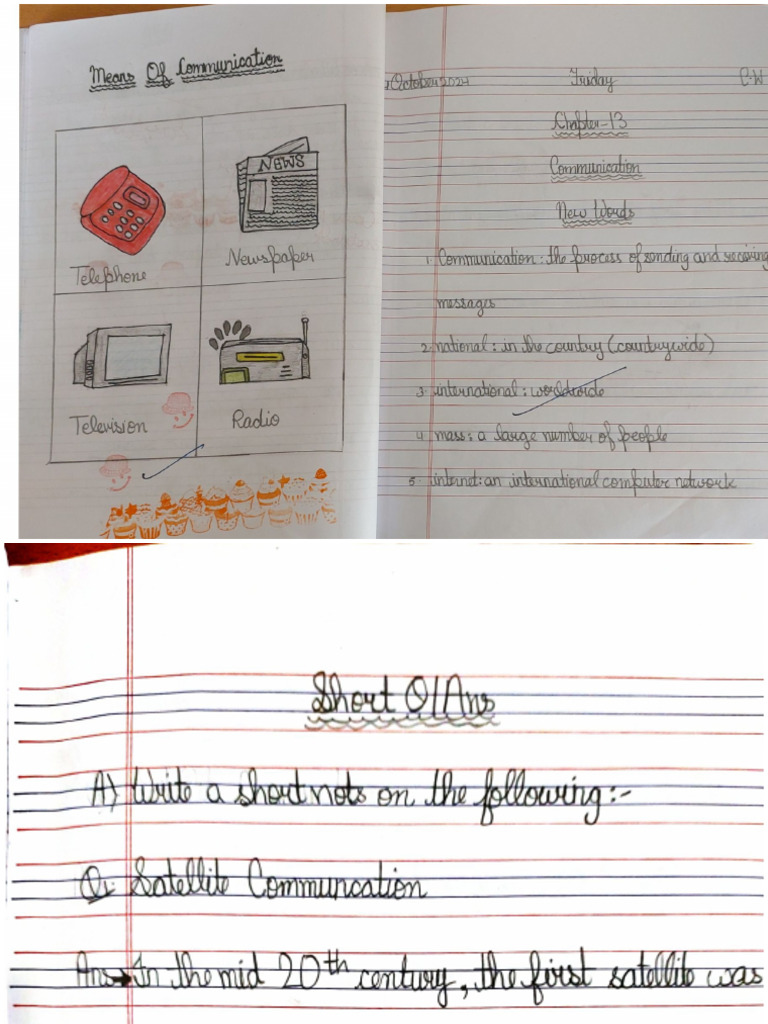 Means Of Communication
NEWS
Telephone
Newspaper
Television
Radio
October 2024 Friday C.W
Chapter-13
Communication
New Words
1. Communication: the process of sending and receiving
messages
2. national: in the country (countrywide)
3. international: worldwide
4. mass: a large number of people
5. internet: an international computer network
Short Q/Ans
A) Write a short nots on the following:-
Q1. Satellite Communcation
Ans→ In the mid 20th century, the first satellite was